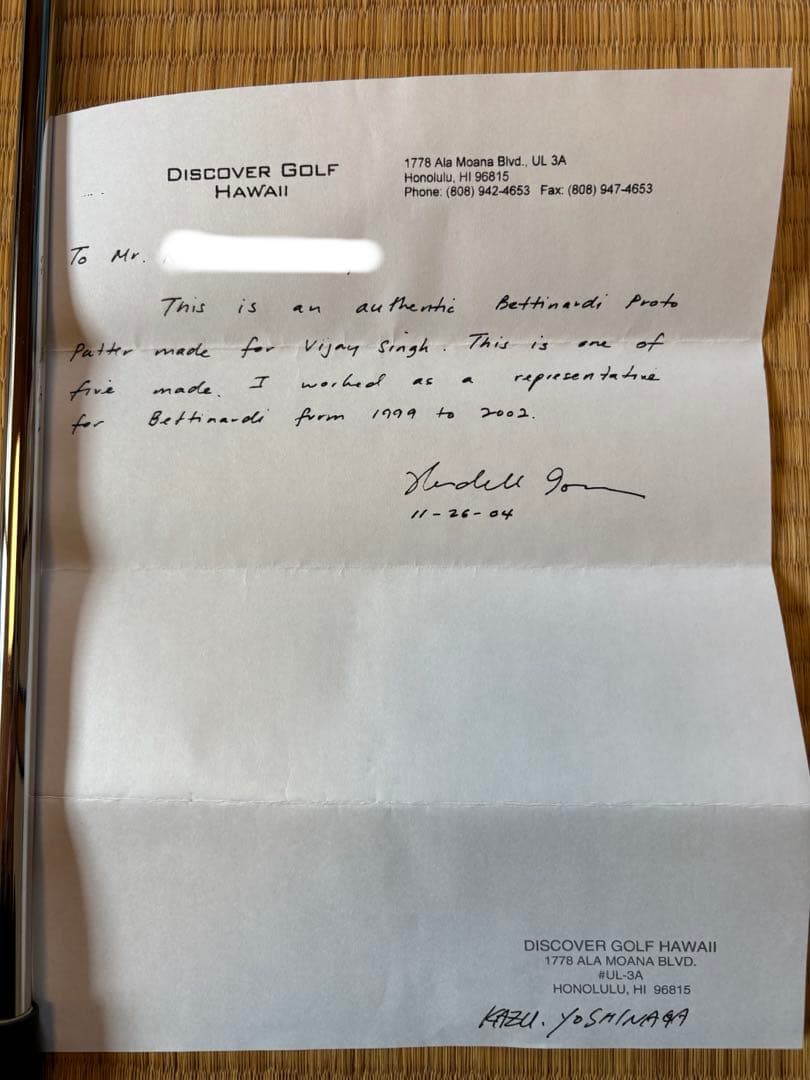 DISCOVER GOLF
HAWAII
1778 Ala Moana Blvd., UL 3A
Honolulu, HI 96815
Phone: (808) 942-4653 Fax: (808) 947-4653
To Mr.
This is an authentic Bettinardi Proto
Putter made for Vijay Singh. This is one of
five made. I worked as a representative
for Bettinardi from 1999 to 2002.
11-26-04
DISCOVER GOLF HAWAII
1778 ALA MOANA BLVD.
#UL-3A
HONOLULU, HI 96815
KAZU. YOSHINAGA